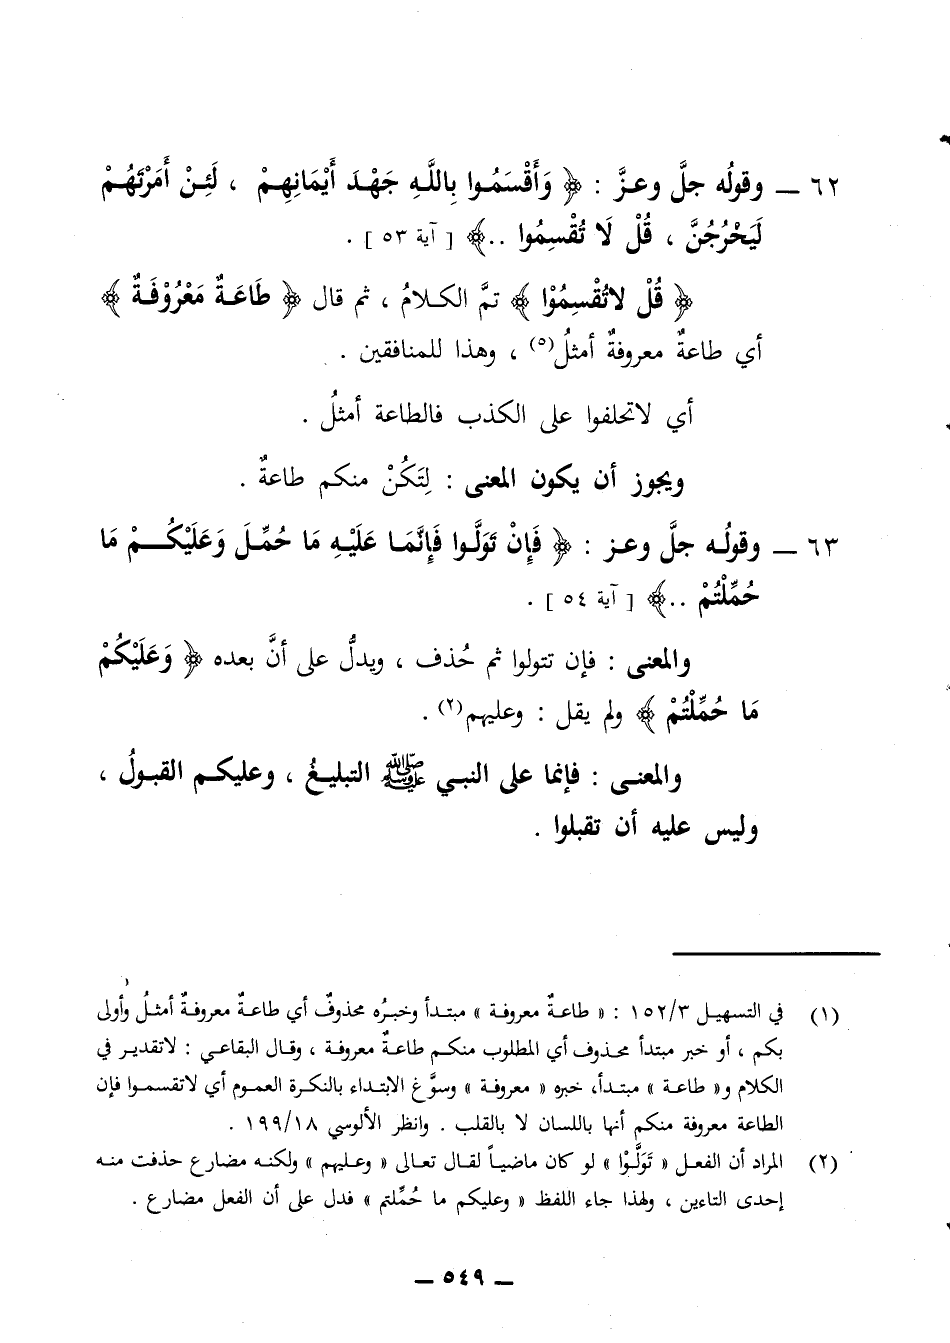 ٦٢ ــ وقولُه جلَّ وعزَّ : ﴿ وَأَقْسَمُوا بِاللَّهِ جَهْدَ أَيْمَانِهِمْ ، لَئِنْ أَمَرْتَهُمْ
لَيَخْرُجُنَّ ، قُلْ لَا تُقْسِمُوا ..﴾ [ آية ٥٣ ] .
﴿ قُلْ لاتُقْسِمُوْا ﴾ تمَّ الكلامُ ، ثم قال ﴿ طَاعَةٌ مَعْرُوْفَةٌ ﴾
أي طاعةٌ معروفةٌ أمثلُ(٥) ، وهذا للمنافقين .
أي لاتحلفوا على الكذب فالطاعة أمثلُ .
ويجوز أن يكون المعنى : لِتَكُنْ منكم طاعةٌ .
٦٣ ــ وقولُه جلَّ وعز : ﴿ فَإِنْ تَوَلَّوا فَإِنَّمَا عَلَيْهِ مَا حُمِّلَ وَعَلَيْكُمْ مَا
حُمِّلْتُمْ ..﴾ [ آية ٥٤ ] .
والمعنى : فإن تتولوا ثم حُذف ، ويدلُّ على أنَّ بعده ﴿ وَعَلَيْكُمْ
مَا حُمِّلْتُمْ ﴾ ولم يقل : وعليهم(٢) .
والمعنى : فإنما على النبي ﷺ التبليغُ ، وعليكم القبولُ ،
وليس عليه أن تقبلوا .
(١) في التسهيل ١٥٢/٣ : « طاعةٌ معروفة » مبتدأ وخبرُه محذوفٌ أي طاعةٌ معروفةٌ أمثلُ وأولى
بكم ، أو خبر مبتدأ محذوف أي المطلوب منكم طاعةٌ معروفة ، وقال البقاعي : لاتقدير في
الكلام و« طاعة » مبتدأ، خبره « معروفة » وسوَّغ الابتداء بالنكرة العموم أي لاتقسموا فإن
الطاعة معروفة منكم أنها باللسان لا بالقلب . وانظر الألوسي ١٩٩/١٨ .
(٢) المراد أن الفعل « تَوَلَّوْا » لو كان ماضياً لقال تعالى « وعليهم » ولكنه مضارع حذفت منه
إحدى التاءين ، ولهذا جاء اللفظ « وعليكم ما حُمِّلتم » فدل على أن الفعل مضارع .
ــ ٥٤٩ ــ